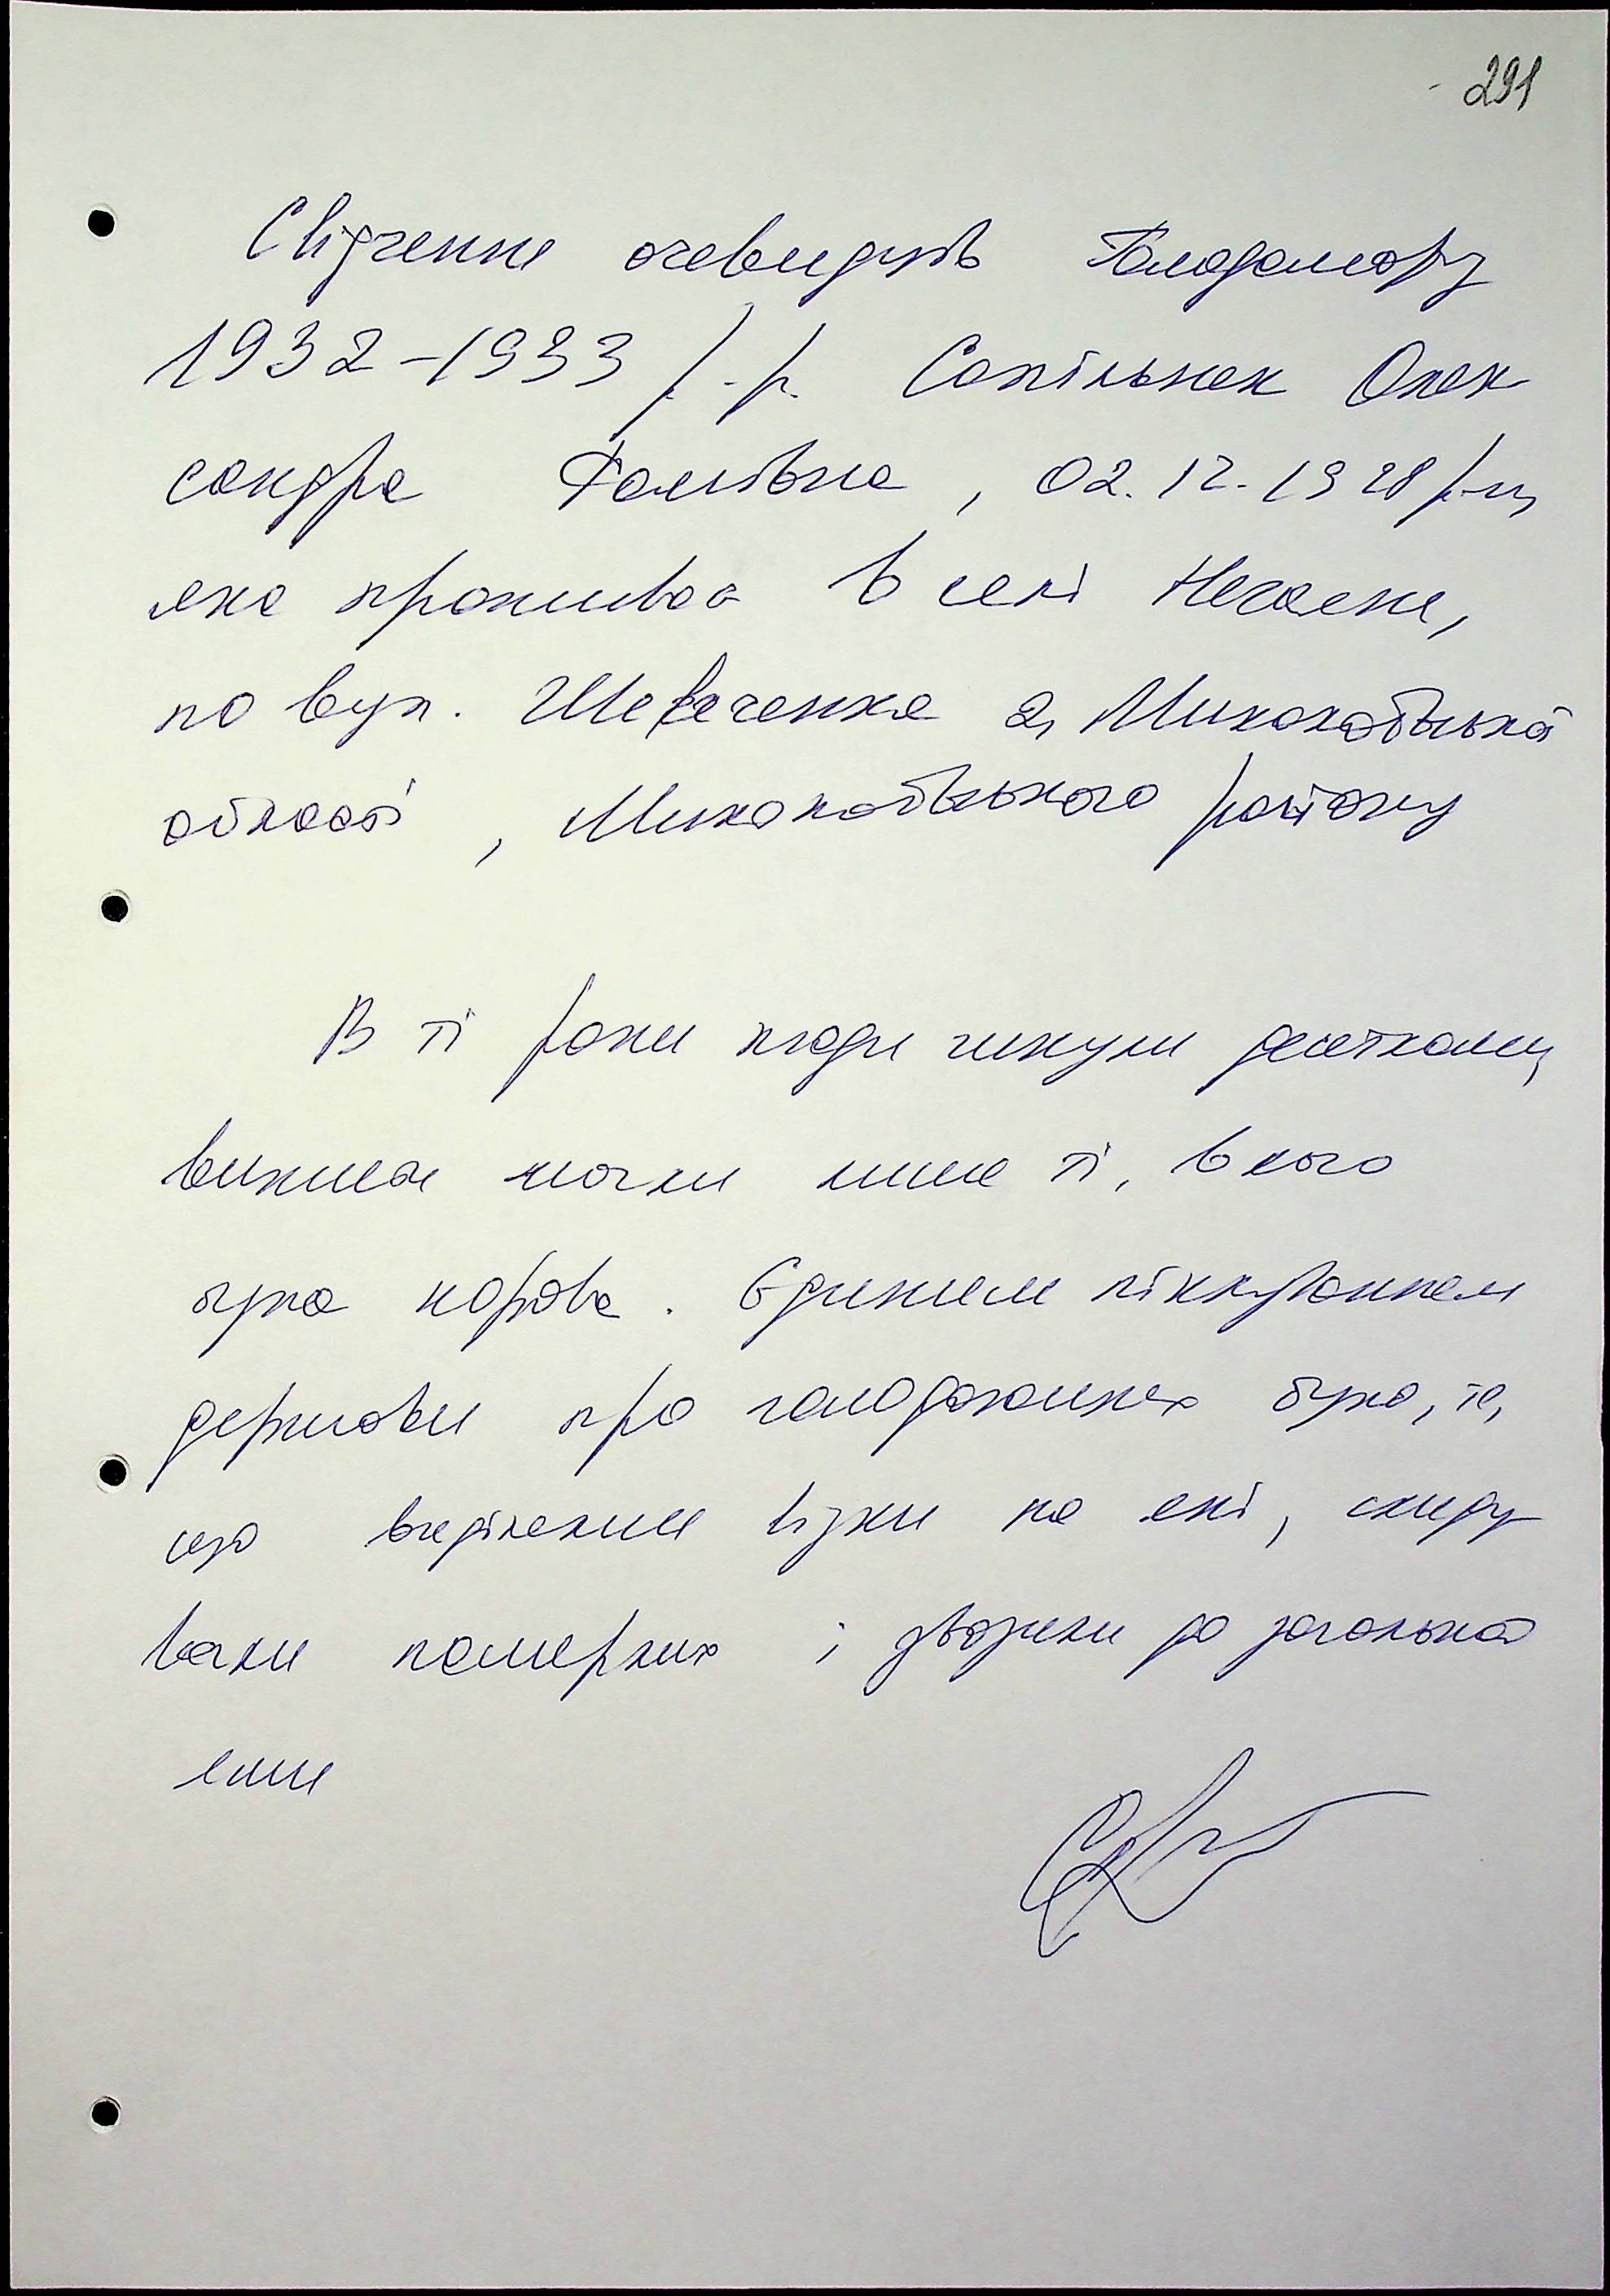 291
Свідчення очевидців Голодомору
1932-1933 р.р. Сопільняк Олек
сандра Фомівна, 02.12.1928 р-н,
яка проживає в селі Нечаяне,
по вул. Шевченка 2, Миколаївської
області, Миколаївського району
В ті роки люди гинули десятками,
вижити могли лише ті, в кого
була корова. Єдиним піклуванням
держави про голодуючих було, те,
що виділяли візки на які, скиду
вали померлих і звозили до загальної
ями